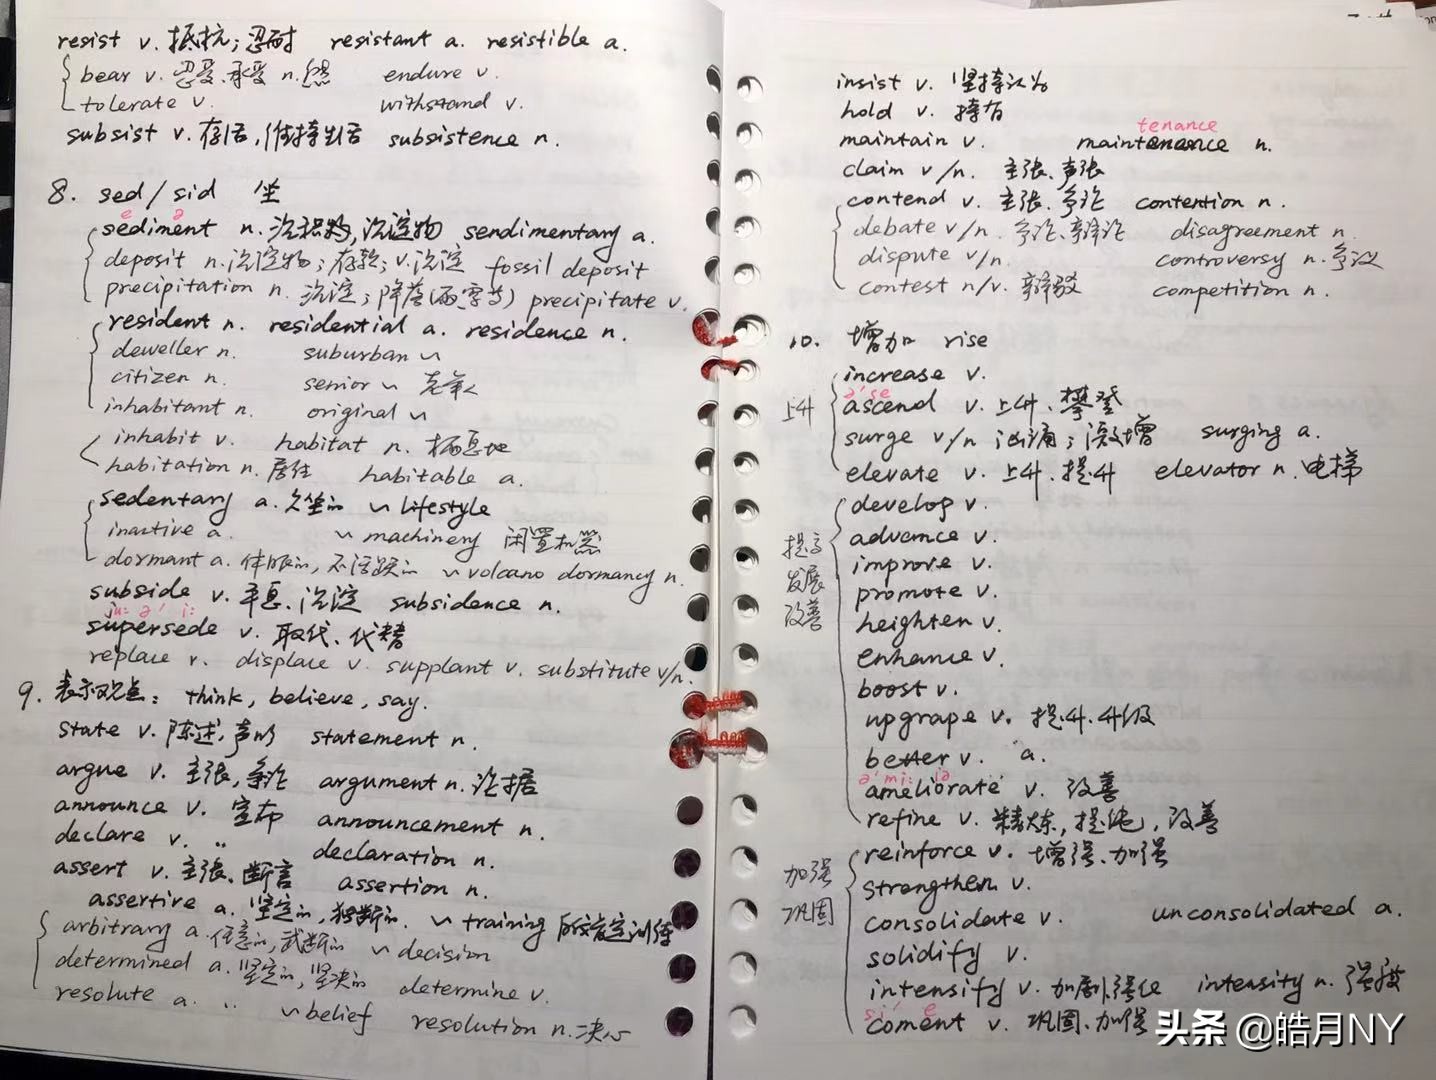 resist v. 抵抗；忍耐 resistant a. resistible a.
bear v. 忍受、承受 n. 熊 endure v.
tolerate v. withstand v.
subsist v. 存活，维持生活 subsistence n.
8. sed/sid 坐
e ə
sediment n. 沉积物，沉淀物 sendimentary a.
deposit n. 沉淀物；存款；v. 沉淀 fossil deposit
precipitation n. 沉淀；降落(雨雪等) precipitate v.
resident n. residential a. residence n.
deweller n. suburban ~
citizen n. senior ~ 老年人
inhabitant n. original ~
inhabit v. habitat n. 栖息地
habitation n. 居住 habitable a.
sedentary a. 久坐的 ~ lifestyle
inactive a. ~ machinery 闲置机器
dormant a. 休眠的，不活跃的 ~ volcano dormancy n.
subside v. 平息、沉淀 subsidence n.
ju: ə' i:
supersede v. 取代、代替
replace v. displace v. supplant v. substitute v/n.
9. 表示观点：think, believe, say.
state v. 陈述，声明 statement n.
argue v. 主张，争论 argument n. 论据
announce v. 宣布 announcement n.
declare v. 〃 declaration n.
assert v. 主张、断言 assertion n.
assertive a. 坚定的，独断的. ~ training
arbitrary a. 任意的，武断的 ~ decision
determined a. 坚定的，坚决的 determine v.
resolute a. 〃 ~ belief resolution n. 决心
insist v. 坚持认为
hold v. 持有
tenance
maintain v. maintenance n.
claim v/n. 主张、声张
contend v. 主张、争论 contention n.
debate v/n. 争论、辩论 disagreement n.
dispute v/n. controversy n. 争议
contest n/v. 辩驳 competition n.
10. 增加 rise
increase v.
ə'se
上升 ascend v. 上升、攀登
surge v/n 汹涌；激增 surging a.
elevate v. 上升、提升 elevator n. 电梯
develop v.
提高 advance v.
发展 improve v.
改善 promote v.
heighten v.
enhance v.
boost v.
upgrape v. 提升、升级
better v. a.
ə'mi: iə
ameliorate v. 改善
refine v. 精炼，提纯，改善
加强 reinforce v. 增强、加强
strengthen v.
巩固 consolidate v. unconsolidated a.
solidify v.
intensify v. 加剧，强化 intensity n. 强度
si' e
coment v. 巩固、加强
头条 @皓月NY